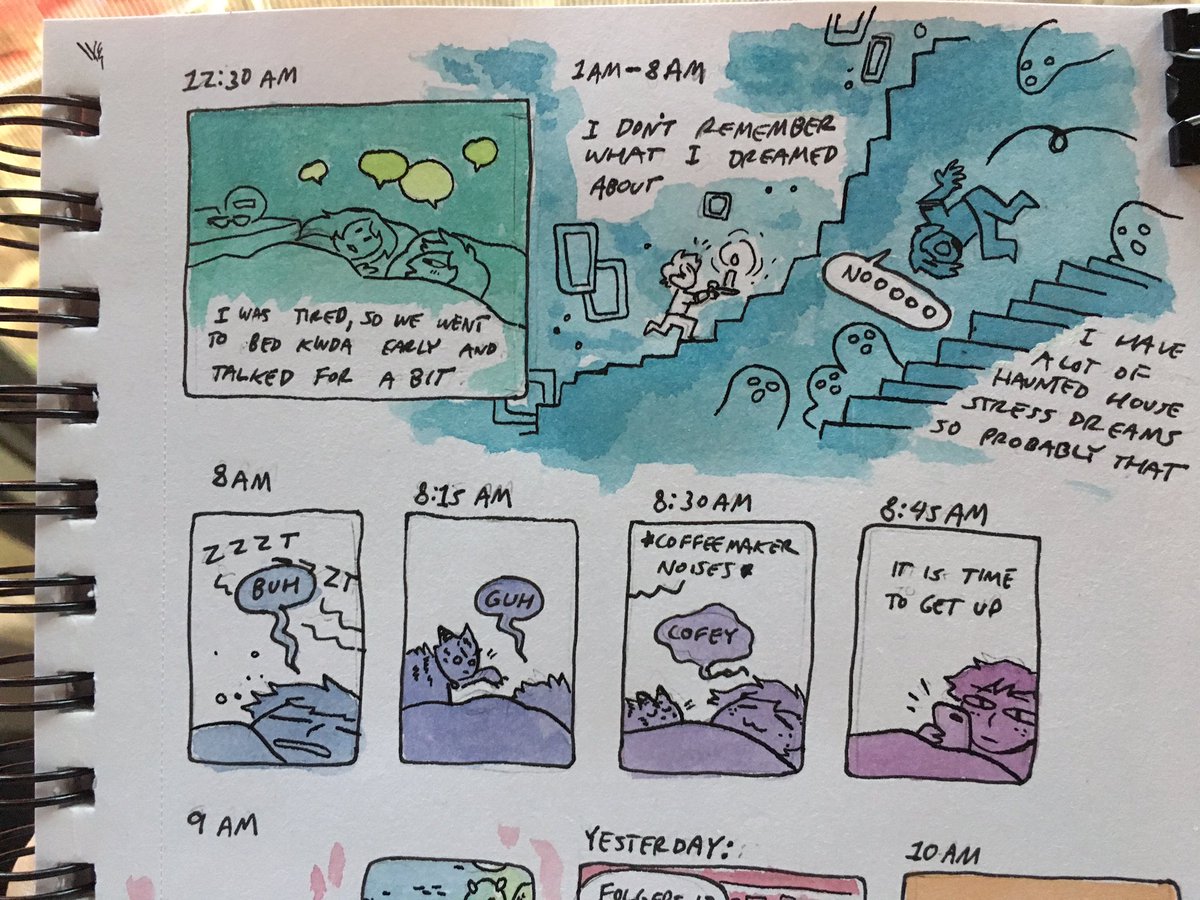 12:30 AM
I WAS TIRED, SO WE WENT
TO BED KINDA EARLY AND
TALKED FOR A BIT.
1AM-8AM
I DON'T REMEMBER
WHAT I DREAMED
ABOUT
NOOOOO
I HAVE
A LOT OF
HAUNTED HOUSE
STRESS DREAMS
SO PROBABLY THAT
8AM
ZZZT
ZZZT
BUH
8:15 AM
GUH
8:30 AM
*COFFEEMAKER
NOISES*
COFEY
8:45AM
IT IS TIME
TO GET UP
9 AM
YESTERDAY:
10 AM